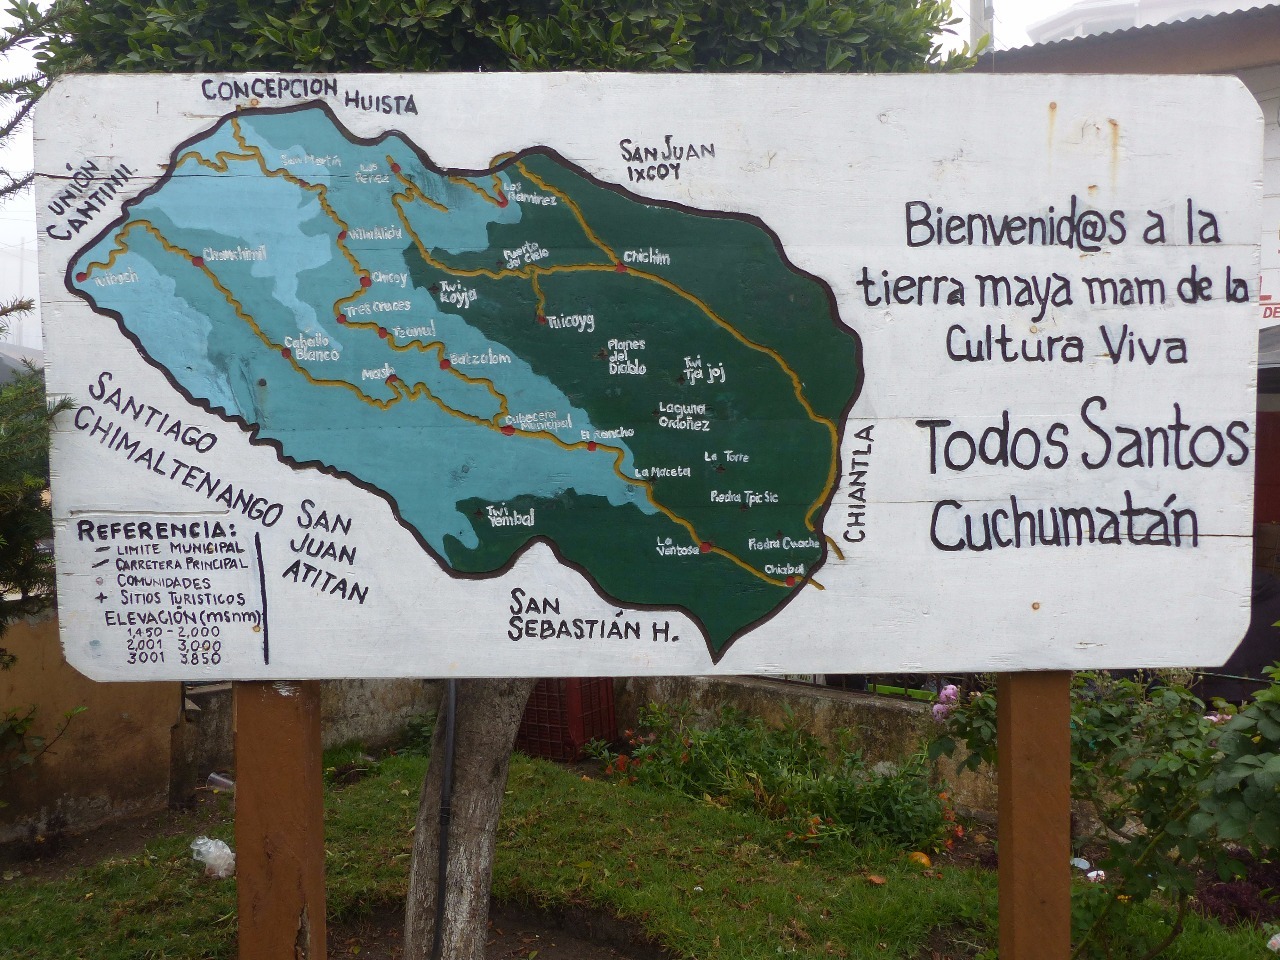 CONCEPCION
HUISTA
UNIÓN
CANTINIL
SAN JUAN
IXCOY
Bienvenid@s a la
tierra maya mam de la
Cultura Viva
Todos Santos
Cuchumatán
San Martín
Los
Pérez
Los
Ramirez
Villa Alicia
Chanchimil
Puerta
del Cielo
Chichim
Chicoy
Twi
Koyja
Tres Cruces
Tuicoyg
Tzunul
Caballo
Blanco
Batzalom
Mash
Planes
del
Diablo
Twi
Tjoj
Laguna
Ordoñez
Cabecera
Municipal
El Rancho
La Torre
La Maceta
Piedra Tpic Sic
Twi
Yembal
La
Ventosa
Piedra Cuache
Chiabal
CHIANTLA
SANTIAGO
CHIMALTENANGO
SAN
JUAN
ATITAN
SAN
SEBASTIÁN H.
REFERENCIA:
LIMITE MUNICIPAL
CARRETERA PRINCIPAL
COMUNIDADES
+ SITIOS TURISTICOS
ELEVACIÓN (msnm)
1,450 - 2,000
2,001 3,000
3001 3,850
DE